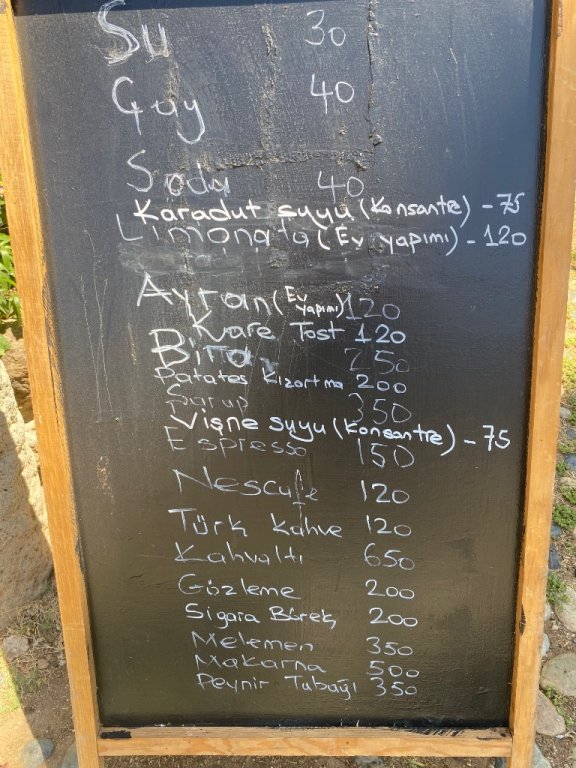 Su 30
Çay 40
Soda 40
Karadut suyu (Konsantre) - 75
Limonata (Ev yapımı) - 120
Ayran (Ev yapımı) 120
Kare Tost 120
Bira 250
Patates Kızartma 200
Şarap 350
Vişne suyu (Konsantre) - 75
Espresso 150
Nescafe 120
Türk Kahve 120
Kahvaltı 650
Gözleme 200
Sigara Börek 200
Melemen 350
Makarna 500
Peynir Tabağı 350